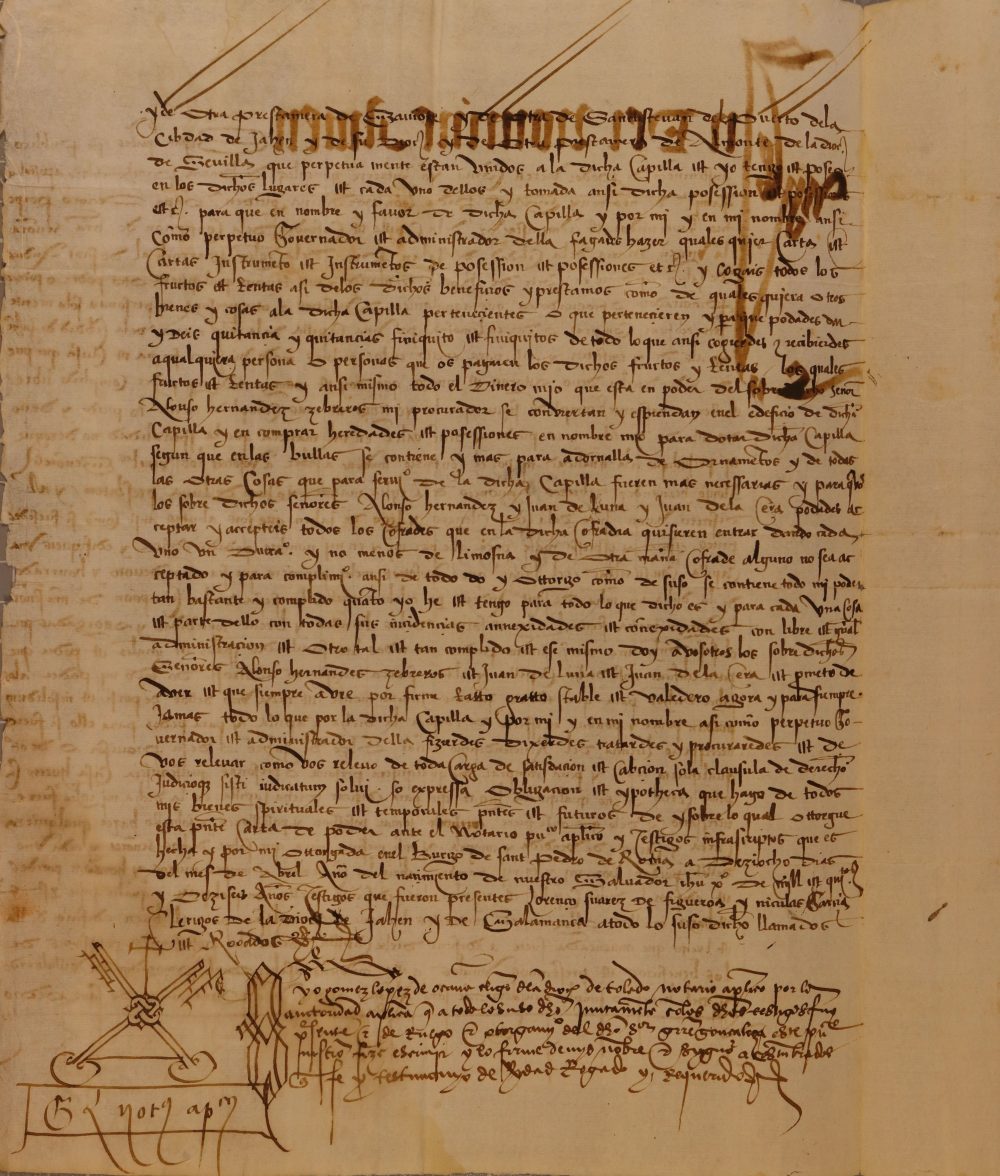 y de otra prestamera de y de otra de Santistevan del Puerto dela
Cibdad de Jahen y de su y de otra prestamera de Almonte de la
de Sevilla que perpetua mente estan unidos a la dicha Capilla et yo tengo et pose
en los dichos lugares et cada uno dellos y tomada ansi dicha posession et
para que en nombre y favor de dicha Capilla y por mi y en mi nombre ansi
como perpetuo Governador et administrador della fagades hazer quales quier Carta et
Cartas Instrumeto et Instrumetos de posession et posessiones y cogais todos los
fructos et Rentas asi delos dichos beneficios y prestamos como de quales quiera otros
bienes y cosas ala dicha Capilla pertenecientes o que pertenecieren y para que podades dar
y deis quitancia y quitancias finiquito et finiquitos de todo lo que ansi cogierdes y recibierdes
a qualquiera persona o personas que os paguen los dichos fructos y Rentas los quales
fructos et Rentas y ansi mismo todo el dinero mio que esta en poder del sobre dicho señor
Alonso hernandez zebreros mi procurador se conviertan y espiendan enel edeficio de dicha
Capilla y en comprar heredades et posessiones en nombre mio para dotar dicha Capilla
segun que en las bullas se contiene y mas para adornalla de Ornametos y de todas
las otras Cosas que para servio de la dicha Capilla fueren mas necessarias y para
los sobre dichos señores Alonso hernandez y Juan de luna y Juan dela Cera podades ac
ceptar y accepteis todos los Cofrades que en la dicha Cofradia quisieren entrar dando cada
uno un Ducao. y no menos de limosna y de otra mana Cofrade alguno no sea ac
ceptado y para complimio. ansi de todo do y Ottorgo como de suso se contiene todo mi poder
tan bastante y complido quato yo he et tengo para todo lo que dicho es y para cada una cosa
et parte dello con todas sus incidencias annexidades et conexidades con libre et gnal
administracion et Otro tal et tan complido et ese mismo doy a vosotros los sobre dichos
Señores Alonso hernandes zebreros et Juan de luna et Juan dela Cera et pmeto de
aver et que siempre avre por firme Ratto gratto stable et valedero agora y para siempre
Jamas todo lo que por la dicha Capilla y por mi y en mi nombre asi como perpetuo Go
vernador et administrador della fizerdes dixerdes tratardes y procuraredes et de
vos relevar como vos relevo de toda Carga de satisdacion et Cabcion sola clausula de derecho
Judicioque sisti iudicatum solvi. so expressa Obligacion et ypotheca que hago de todos
mis bienes spirituales et temporales pntes et futuros de y sobre lo qual ottorgue
esta pnte Carta de poder ante el Notario puco aplico y Testigos infrascriptos que es
hecha y por mi ottorgada enel Burgo de sant pedro de Roma a Deziocho dias
del mes de Abril Año del nacimiento de nuestro Salvador ihu xo de mill et quis
y Deziseis Años Testigos que fueron presentes Lorenco suarez de figueroa y niculas Garcia
Clerigos de la dioc de Jahen y de Salamanca a todo lo suso dicho llamados
et Rogados
yo gomez lopez de ocaña cligo dela dioc de toledo notario aplico por la
auctoridad aplica que a todo lo suso dho juntamete colos dhos testigos fuy
psente e de Ruego e otorgamio del dho sor goncalez este puco
instro fize escrivir y lo firme de myo nobre e sygno acostubrados
en fe y testimonyo de verdad Rogado y Requerido
G L notus apcus